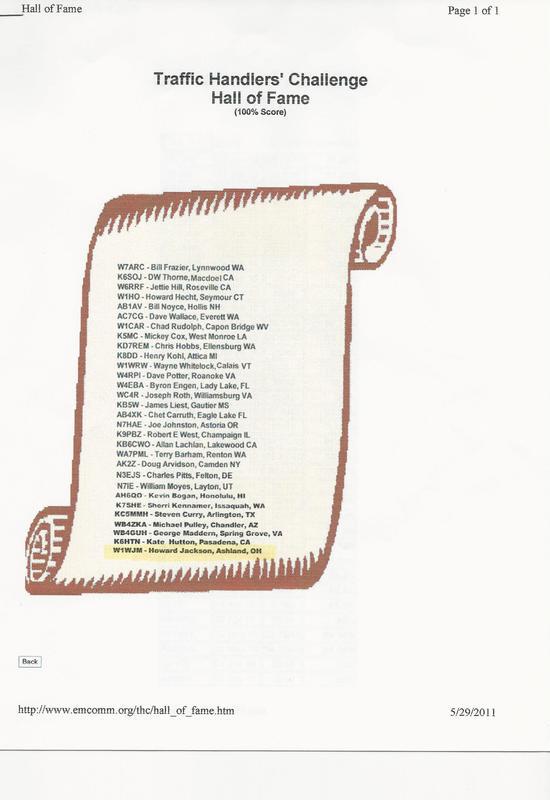 Hall of Fame
Page 1 of 1
Traffic Handlers' Challenge
Hall of Fame
(100% Score)
W7ARC - Bill Frazier, Lynnwood WA
K6SOJ - DW Thorne,Macdoel CA
W6RRF - Jettie Hill, Roseville CA
W1HO - Howard Hecht, Seymour CT
AB1AV - Bill Noyce, Hollis NH
AC7CG - Dave Wallace, Everett WA
W1CAR - Chad Rudolph, Capon Bridge WV
K5MC - Mickey Cox, West Monroe LA
KD7REM - Chris Hobbs, Ellensburg WA
K8DD - Henry Kohl, Attica MI
W1WRW - Wayne Whitelock,Calais VT
W4RPI - Dave Potter, Roanoke VA
W4EBA - Byron Engen, Lady Lake, FL
WC4R - Joseph Roth, Williamsburg VA
KB5W - James Liest, Gautier MS
AB4XK - Chet Carruth, Eagle Lake FL
N7HAE - Joe Johnston, Astoria OR
K9PBZ - Robert E West, Champaign IL
KB6CWO - Allan Lachlan, Lakewood CA
WA7PML - Terry Barham, Renton WA
AK2Z - Doug Arvidson, Camden NY
N3EJS - Charles Pitts, Felton, DE
N7IE - William Moyes, Layton, UT
AH6QO - Kevin Bogan, Honolulu, HI
K7SHE - Sherri Kennamer, Issaquah, WA
KC5MMH - Steven Curry, Arlington, TX
WB4ZKA - Michael Pulley, Chandler, AZ
WB4GUH - George Maddern, Spring Grove, VA
K6HTN - Kate Hutton, Pasadena, CA
W1WJM - Howard Jackson, Ashland, OH
Back
http://www.emcomm.org/thc/hall_of_fame.htm
5/29/2011